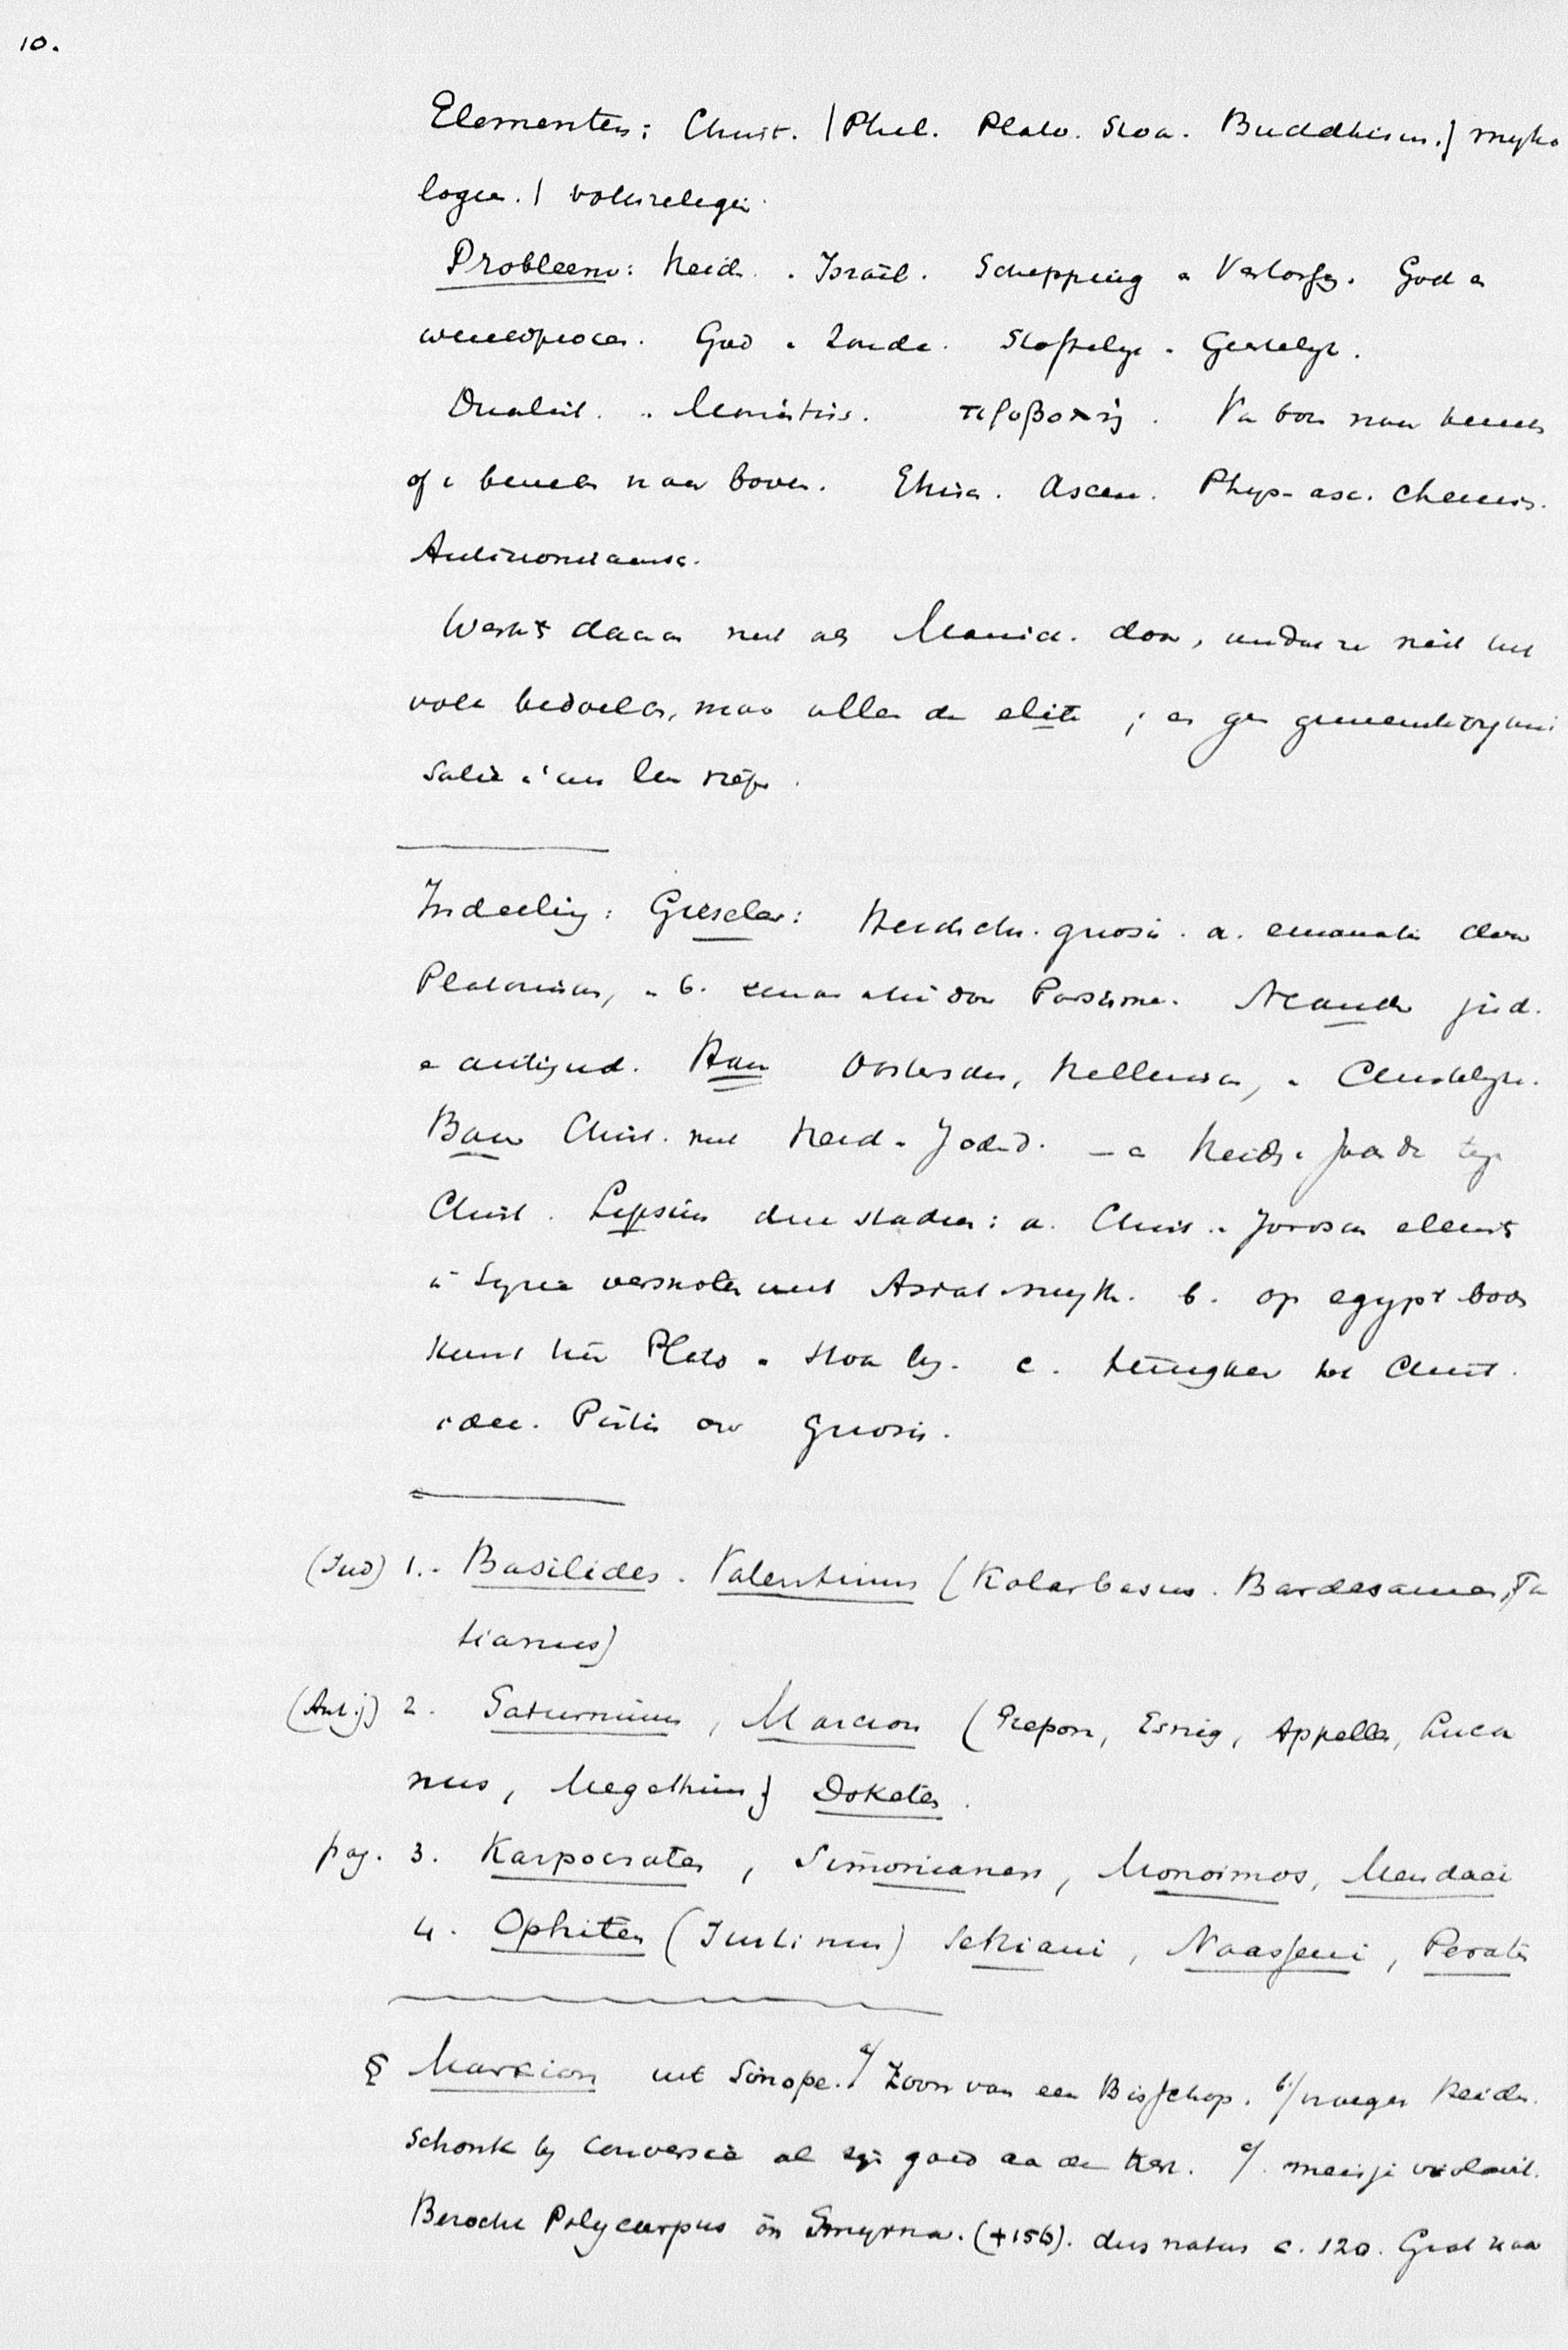 10.
Elementen: Christ. | Phil. Plato. Stoa. Buddhism.} mytho
logie. | volksreligie.
Probleem: Heid. . Israël. Schepping . Verlossg. God e
wereldproces. God . Zonde. Stoffelyk . Geestelyk.
Dualist. . Monistis. προβολή. Va bov. naar bened.
of v beneden naar boven. Ethisch. Ascese. Phys-asc. chemis.
Antinomiaansc.
Werkt daar niet als Manich. door, omdat ze niet het
volk bedoelen, maar alleen de elite ; en geen gemeenteorgani
satie i 't aan
Indeeling: Gieseler: Heidchr. gnosis. a. emanatie door
Platonism, . b. emanatie door Parsisme. Neander jud.
e antijud. Hase Oostersche, Hellenisch, . Christelyk.
Baur Christ. met Heid . Jodend. — a Heid . Joods teg
Christ. Lipsius drie stadien: a. Christ . Joodsch element
i Syrie versmolten met Asiat. myth. b. op egypt bod
komt hier Plato . Stoa by. c. terugkeer tot Christ.
idee. Pistis en gnosis.
(Jud) 1.. Basilides . Valentinus (Kolarbasus . Bardesanes, Ta
tianus)
(Antij) 2. Saturninus, Marcion (Prepon, Esnig, Appelles, Luca
nus, Megethius} Doketen.
pag. 3. Karpocrates, Simonianen, Monoimos, Mendaei
4. Ophiten (Justinus) Sethiani, Naasseni, Peraten
§ Markion uit Sinope. a/ Zoon van een Bisschop. b/ vroeger heiden.
Schonk by conversie al zyn goed aa de Kerk. c/. meisje violavit.
Bezocht Polycarpus in Smyrna. (+156). dus natus c. 120. Gaat naar